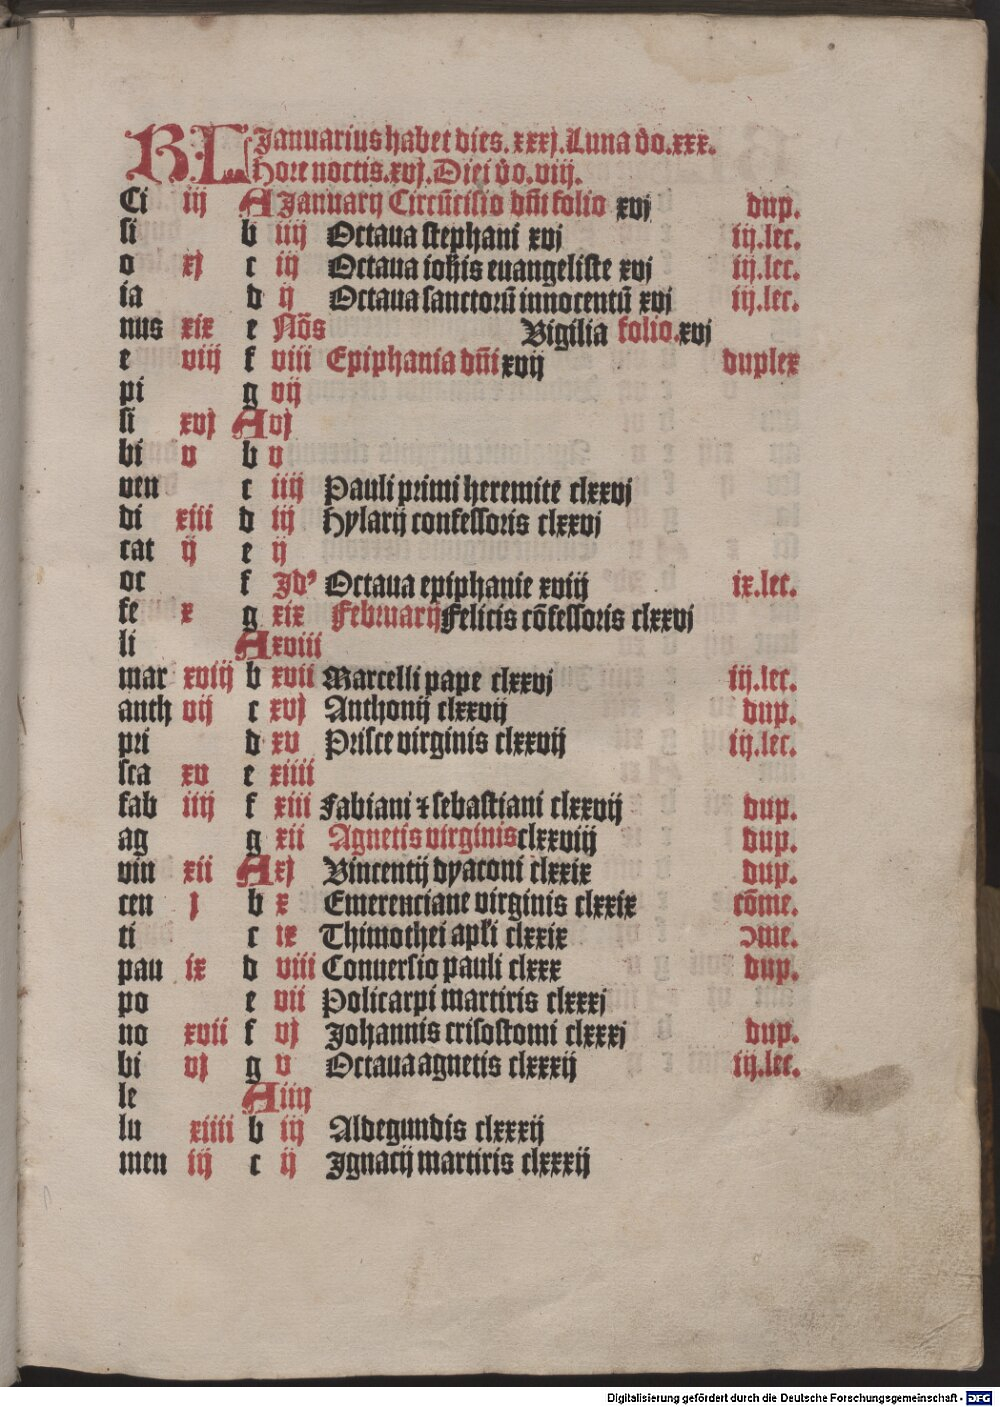 KL Januarius habet dies. xxxj. Luna v̄o. xxx.
Hore noctis. xvj. Diei v̄o. viij.
Ci iij A Januarij Circūcisio dn̄i folio xvj dup.
si b iiij Octaua stephani xvj iij.lec.
o xj c iij Octaua ioh̄is euangeliste xvj iij.lec.
ia d ij Octaua sanctorū innocentū xvj iij.lec.
nus xix e Nōs Vigilia folio.xvj
e viij f viii Epiphania dn̄i xvij duplex
pi g vij
si xvj A vj
bi v b v
uen c iiij Pauli primi heremite clxxvj
di xiii d iij Hylarij confessoris clxxvj
cat ij e ij
oc f Jdꝰ Octaua epiphanie xviij ix.lec.
fe x g xix Februarij Felicis cōfessoris clxxvj
li A xviii
mar xviij b xvii Marcelli pape clxxvj iij.lec.
anth vij c xvj Anthonij clxxvij dup.
pri d xv Prisce virginis clxxvij iij.lec.
sca xv e xiiii
fab iiij f xiii Fabiani ⁊ sebastiani clxxvij dup.
ag g xii Agnetis virginis clxxviij dup.
vin xii A xj Vincentij dyaconi clxxix dup.
cen j b x Emerenciane virginis clxxix cōme.
ti c ix Thimothei apl̄i clxxix ↄme.
pau ix d viii Conuersio pauli clxxx dup.
po e vii Policarpi martiris clxxxj
no xvii f vj Johannis crisostomi clxxxj dup.
bi vj g v Octaua agnetis clxxxij iij.lec.
le A iiij
lu xiiii b iij Aldegundis clxxxij
men iij c ij Jgnacij martiris clxxxij
Digitalisierung gefördert durch die Deutsche Forschungsgemeinschaft - DFG